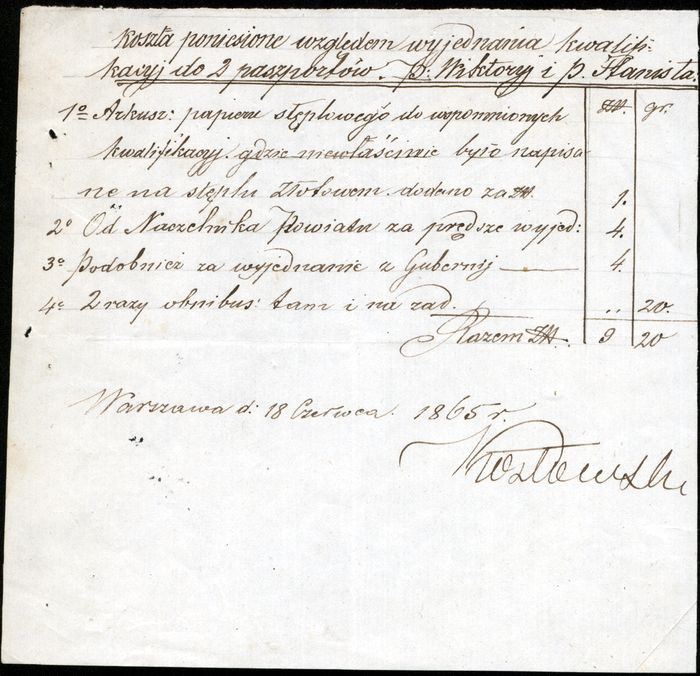 Koszta poniesione względem wyjednania kwalifi-
kacyj do 2 paszportów. P. Wiktoryi i P. Stanisła
Zł. gr.
1o Arkusz: papieru stęplowego do wspomnionych
kwalifikacyj. gdzie niewłaściwie było napisa-
ne na stęplu złotowem dodano za Zł. 1.
2o Od Naczelnika Powiatu za prędsze wyjed: 4.
3o Podobnież za wyjednanie z Gubernij — 4.
4o 2 razy obnibus: tam i na zad. .. 20.
Razem Zł. 9 20
Warszawa d: 18 Czerwca 1865 r.
Kozłowski